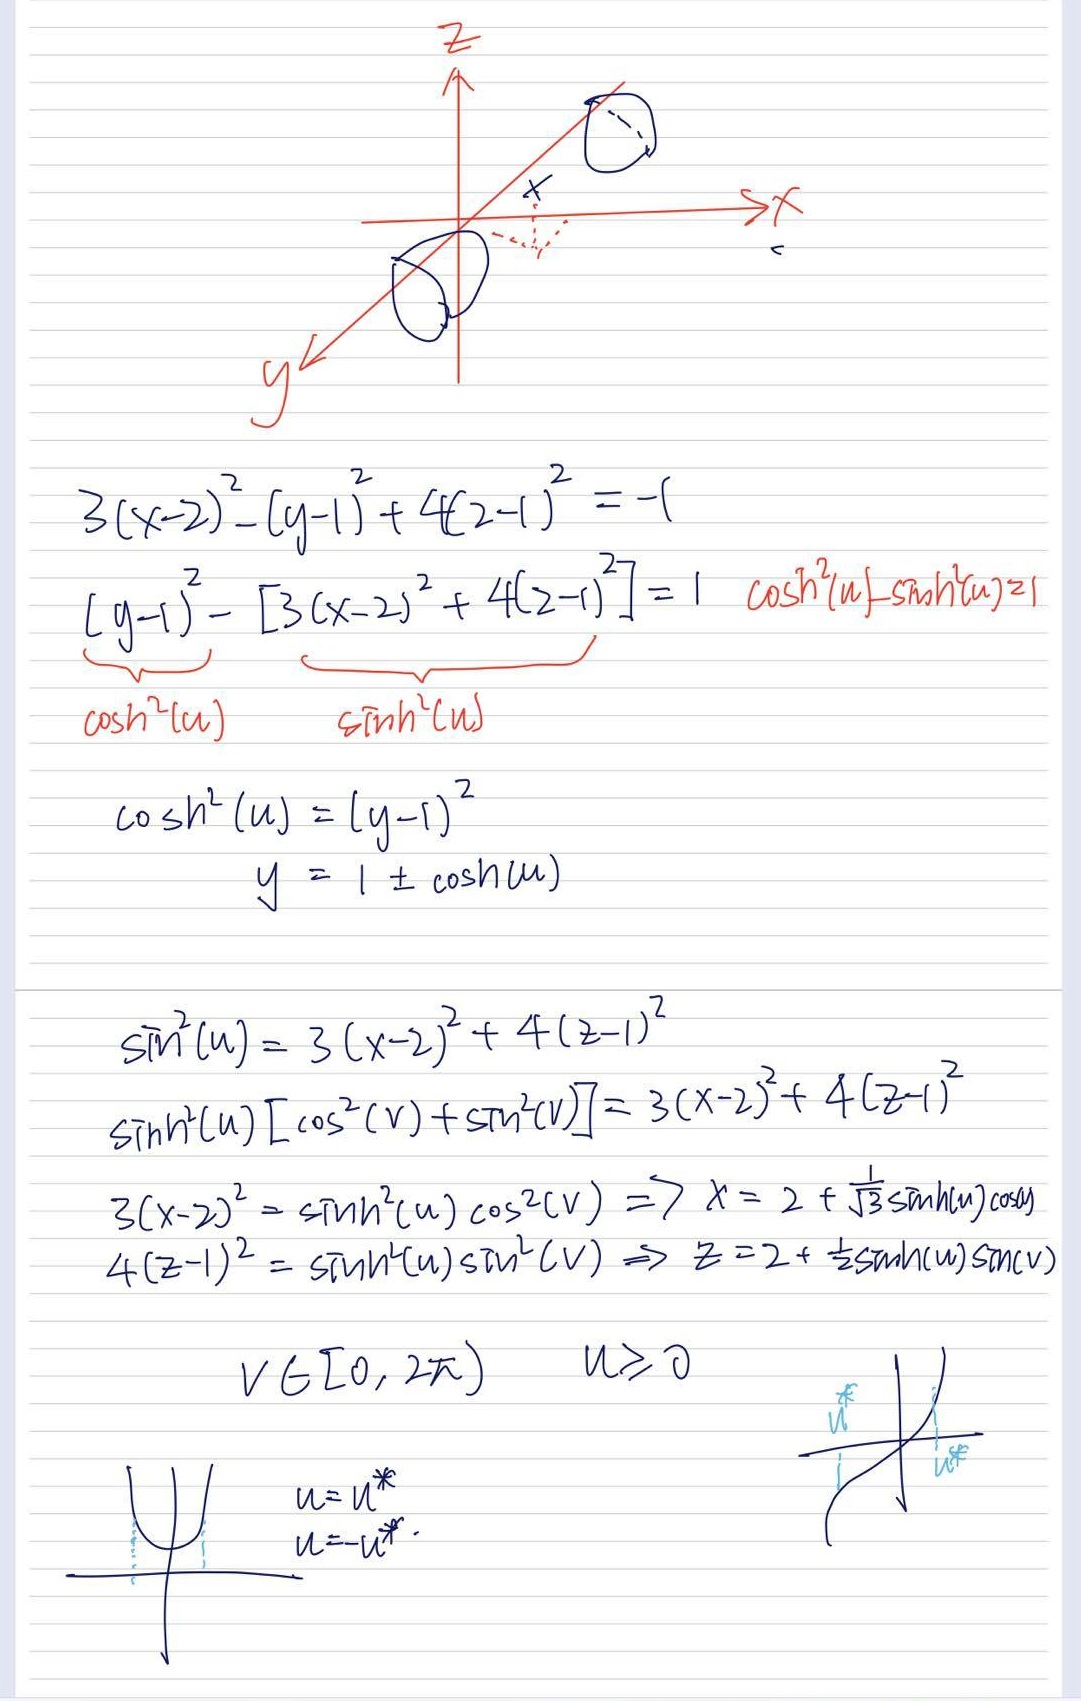 z
x
x
y
3(x-2)² - (y-1)² + 4(z-1)² = -1
(y-1)² - [3(x-2)² + 4(z-1)²] = 1 cosh²(u) - sinh²(u) = 1
cosh²(u) sinh²(u)
cosh²(u) = (y-1)²
y = 1 ± cosh(u)
sin²(u) = 3(x-2)² + 4(z-1)²
sinh²(u)[cos²(v) + sin²(v)] = 3(x-2)² + 4(z-1)²
3(x-2)² = sinh²(u) cos²(v) => x = 2 + 1/√3 sinh(u) cos(v)
4(z-1)² = sinh²(u) sin²(v) => z = 2 + 1/2 sinh(u) sin(v)
v ∈ [0, 2π) u ≥ 0
u*
u*
u = u*
u = -u*.